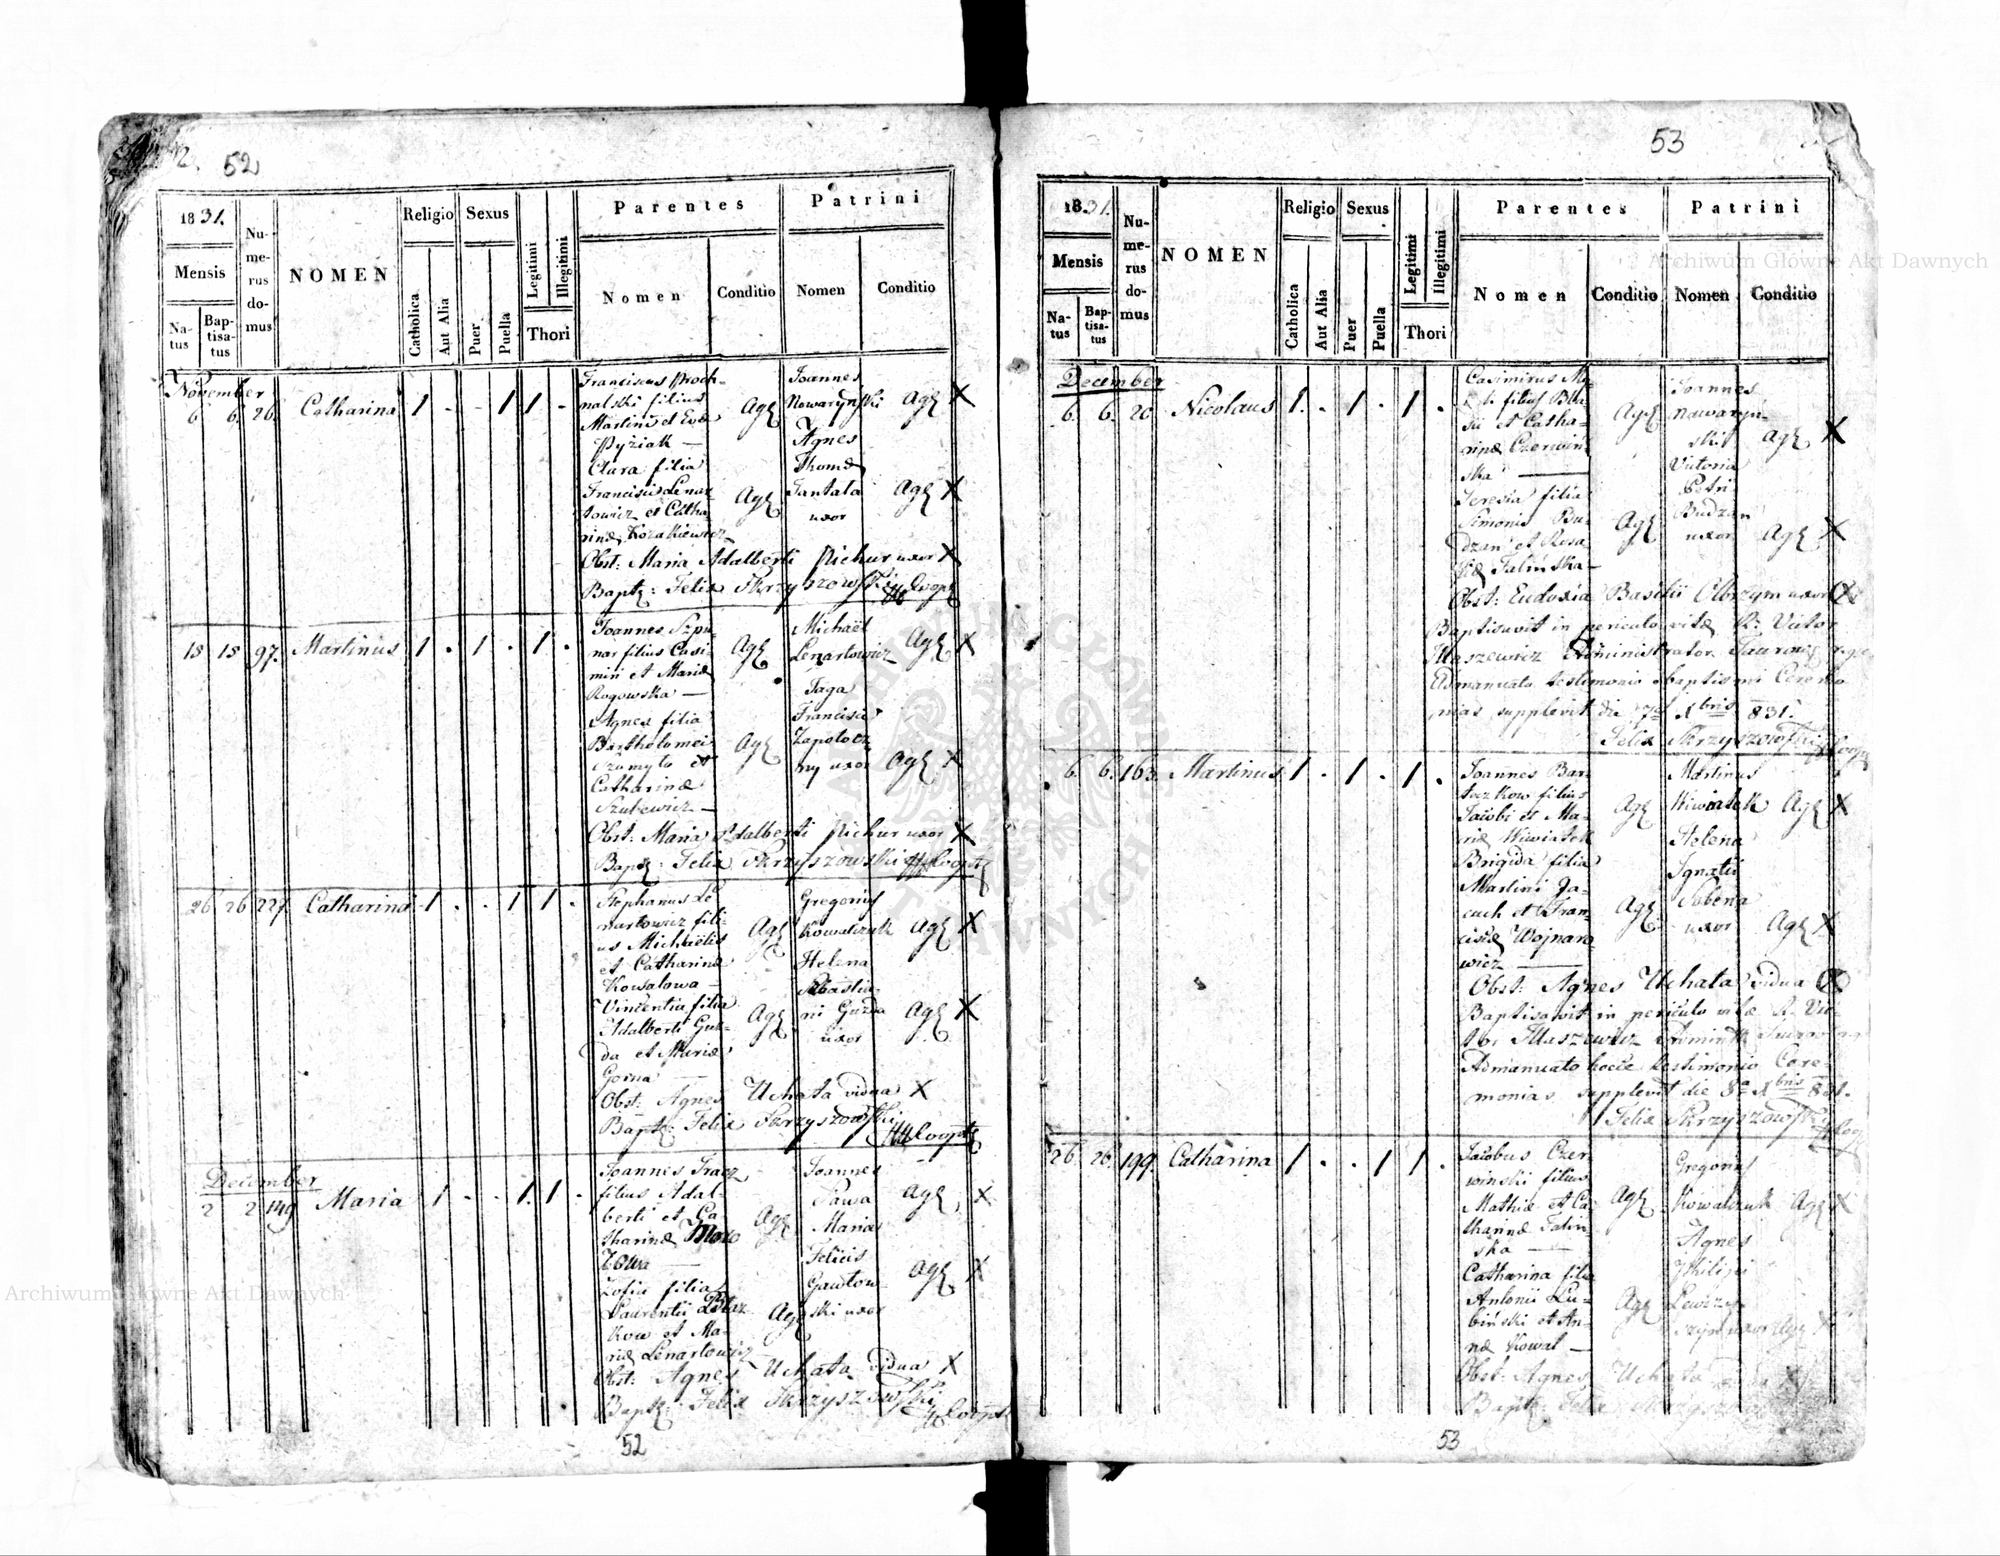 52
1831.
Mensis
Na-
tus
Bap-
tisa-
tus
Nu-
me-
rus
do-
mus
NOMEN
Religio
Catholica
Aut Alia
Sexus
Puer
Puella
Legitimi
Illegitimi
Thori
Parentes
Nomen
Conditio
Patrini
Nomen
Conditio
November
6 6. 26. Catharina 1 - - 1 1 -
Franciscus Proch-
nalski filius
Martini et Evæ
Pyziak —
Agr
Clara filia
Francisci Lenar
towicz et Catha-
rinæ Kozakiewicz
Agr
Joannes
Nowaryński
Agr X
Agnes
Thomæ
Jantala
uxor
Agr X
Obst: Maria Adalberti Pichur uxor X
Bapt: Felix Skrzyszowski Coop
18 18 97. Martinus 1 . 1 . 1 .
Joannes Szpu-
nar filius Casi-
miri et Mariæ
Rogowska —
Agr
Agnes filia
Bartholomei
Szamyło et
Catharinæ
Szubewicz —
Agr
Michaël
Lenartowicz
Agr X
Jaga
Francisci
Zapotocz
ny uxor
Agr X
Obst: Maria Adalberti Pichur uxor X
Bapt: Felix Skrzyszowski Coopr
26 26 227. Catharina 1 . . 1 1 .
Stephanus Le
nartowicz fili-
us Michaëlis
et Catharinæ
Kowalowa —
Agr
Vincentia filia
Adalberti Guz-
da et Mariæ
Gorna —
Agr
Gregorius
Kowalczuk
Agr X
Helena
Sebastia-
ni Guzda
uxor
Agr X
Obst: Agnes Uchata vidua X
Bapt: Felix Skrzyszowski Coopr
December
2 2 149 Maria 1 - - 1. 1 -
Joannes Tracz
filius Adal-
berti et Ca
tharinæ Moro
zowa —
Agr
Zofia filia
Laurentii
kow et Ma-
riæ Lenartowicz
Agr
Joannes
Sawa
Agr X
Maria
Felicis
Gawłow-
ski uxor
Agr X
Obst: Agnes Uchata vidua X
Bapt: Felix Skrzyszowski Coopr
52
53
1831.
Mensis
Na-
tus
Bap-
tisa-
tus
Nu-
me-
rus
do-
mus
NOMEN
Religio
Catholica
Aut Alia
Sexus
Puer
Puella
Legitimi
Illegitimi
Thori
Parentes
Nomen
Conditio
Patrini
Nomen
Conditio
December
6. 6. 20. Nicolaus 1. . 1 . 1 .
Casimirus
filius Bla-
sii et Catha-
rinæ Czerwiń-
ska —
Agr
Teresia filia
Simonis Bu-
dzan et Rosa
liæ Talińska —
Agr
Joannes
Nawaryń-
skii
Agr X
Victoria
Petri
Budzan
uxor
Agr X
Obst: Eudoxia Basilii Olbrzym uxor X
Baptisavit in periculo vitæ R: Victor
Ilaszewicz Administrator
Admanuato testimonio baptismi Ceremo
nias supplevit die 7a Xbris 831.
Felix Skrzyszowski Coopr
6. 6. 163. Martinus 1 . 1 . 1 .
Joannes Bar-
taczkow filius
Jacobi et Ma-
riæ Wiewiatek
Agr
Brigida filia
Martini Ja-
cuch et Fran-
ciscæ Wojnaro
wicz —
Agr
Martinus
Wiwiatek
Agr X
Helena
Ignatii
Sobena
uxor
Agr X
Obst: Agnes Uchata vidua X
Baptisavit in periculo vitæ R. Vic-
tor Ilaszewicz
Admanuato hocce testimonio Cere-
monias supplevit die 8a Xbris 831.
Felix Skrzyszowski Coop
26. 26. 199. Catharina 1 . . 1 1 .
Jacobus Czer
winski filius
Mathiæ et Ca
tharinæ Talin-
ska —
Agr
Catharina filia
Antonii Lu-
biński et An-
næ Kowal —
Agr
Gregorius
Kowalczuk
Agr X
Agnes
Philippi
uxor Agr X
Obst: Agnes Uchata
Bapt: Felix
53
Archiwum Główne Akt Dawnych
Archiwum Główne Akt Dawnych